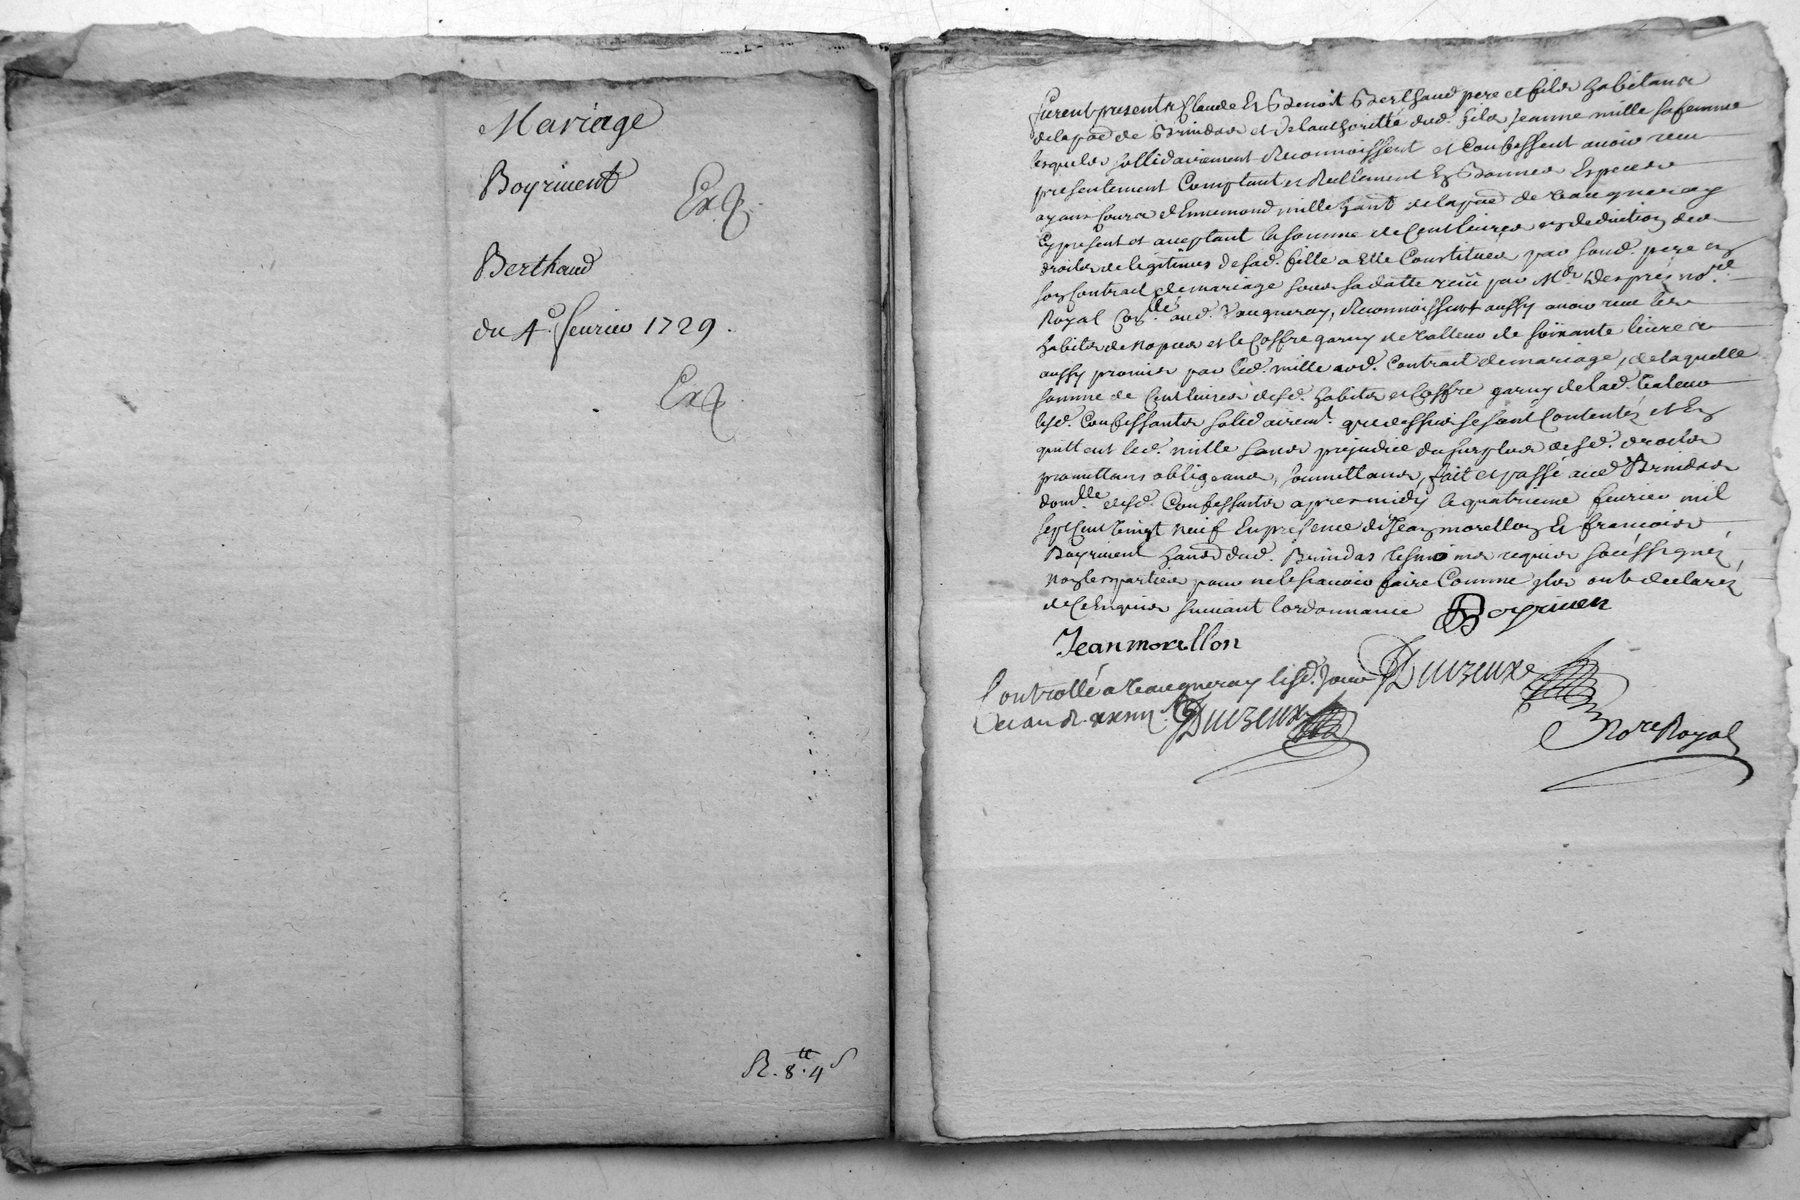 Mariage
Boyriuent
Exp.
Berthaud
du 4e. feurier 1729.
Exp.
R. 8tt. 4s
furent presents Claude Et Benoit Berthaud pere et fils habitans
de la psse de Brindas et de lauthorité dud. fils jeanne mille sa femme
lesquels sollidairement Reconnoissent et Confessent auoir receu
presentement Comptant et Reellement En Bonnes Especes
ayans Cours d'Ennemond mille habt de la psse de Vaugneray
Cy present et aceptant la somme de Cent liures en deduction des
droits de legitimes de sad. fille a Elle Constitues par sond. pere en
son Contrat de mariage sous sa datte receü par Me. Despres nore.
Royal aud. Vaugneray, Reconnoissent aussy auoir receu les
habits de nopces et le Coffre garny de Valleur de soixante liures
aussy promis par led. mille aud. Contrat de mariage, de laquelle
somme de Cent liures desd. habits et Coffre garny de lad. Valeur
lesd. Confessants solidairemt. que dessus se sont Contentés et En
quittent led. mille sans prejudice du surplus desd. droits
promettans obligeans, soumettans, fait et passé aud Brindas
domlle. desd. Confessants apres midy le quatrieme feurier mil
sept Cent Vingt neuf En presence de Jean morellon Et francois
Boyriuent habs dud. Brindas tesmoins requis soússignéz
non les parties pour ne le scauoir faire Comme ils ont declaréz
de Ce Enquis suiuant l'ordonnance Boyriuen
Jean morellon
Controllé a Vaugneray lesd. jour Duvzeuxe
et an R. Duvzeux
Nore Royal